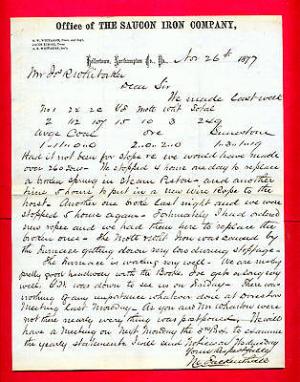 Office of THE SAUCON IRON COMPANY,
Hellertown, Northampton Co., Pa., Nov 26th 1877
Mr Jos R Whitaker
Dear Sir
We made last week
No 1 2x 2c VS Mott Wht Total
2 112 107 15 10 3 249
Avge Coal Ore Limestone
Had it not been for stops we would have made
over 260 tons. We stopped 4 hours one day to replace
a broken spring in steam piston and another
time 5 hours to put in a new wire rope to the
hoist. Another one broke last night and we were
stopped 5 hours again. Fortunately I had extra
new ropes and we had them here to replace the
broken ones. The Mott & Wht iron was caused by
the furnace getting down low during stoppages.
The Furnace is working very well. We are
pretty good handwork with the Coke. Ive get along very
well. was down to see us on Friday. There was
nothing of any importance whatever done at Directors
Meeting last Monday. As you and Mr Whitaker were
not there nearly everything was postponed. We will
have a Meeting on next Monday the 3rd Dec to examine
the yearly statements. I will send Notices on Wednesday
Yours Respectfully